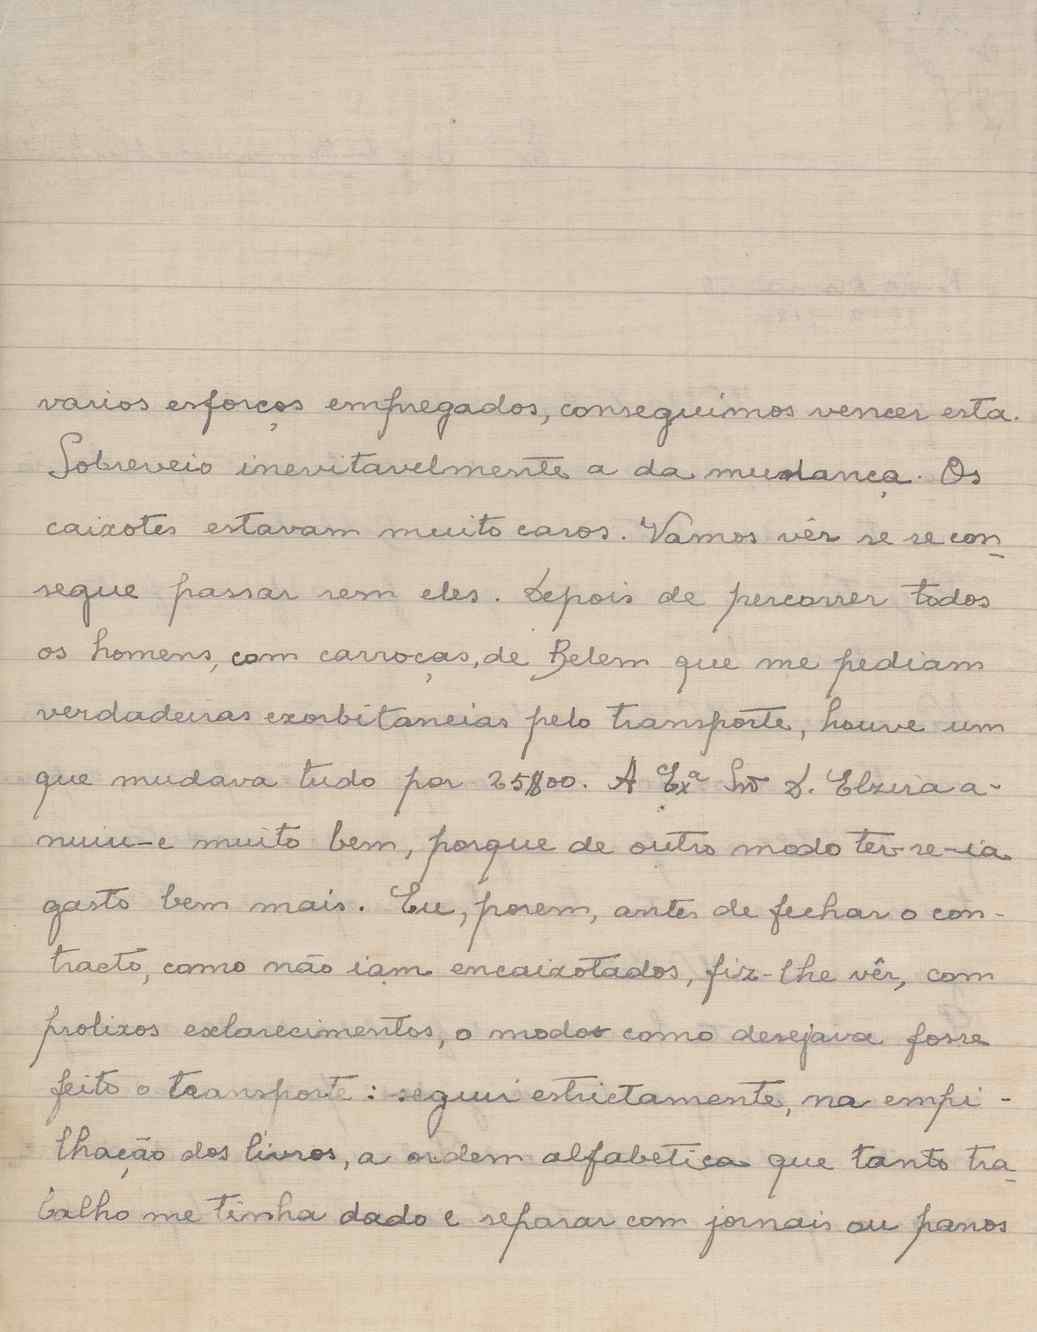 varios esforços empregados, conseguimos vencer esta.
Sobreveio inevitavelmente a da mudança. Os
caixotes estavam muito caros. Vamos vêr se se con-
segue passar sem eles. Depois de percorrer todos
os homens, com carroças, de Belem que me pediam
verdadeiras exorbitancias pelo transporte, houve um
que mudava tudo por 25$00. A Exª Srª D. Elzira a-
nuiu-e muito bem, porque de outro modo ter-se-ia
gasto bem mais. Eu, porem, antes de fechar o con-
tracto, como não iam encaixotados, fiz-lhe vêr, com
prolixos exlarecimentos, o modo como desejava fosse
feito o transporte: seguir estrictamente, na empi-
lhação dos livros, a ordem alfabetica que tanto tra-
balho me tinha dado e separar com jornais ou panos